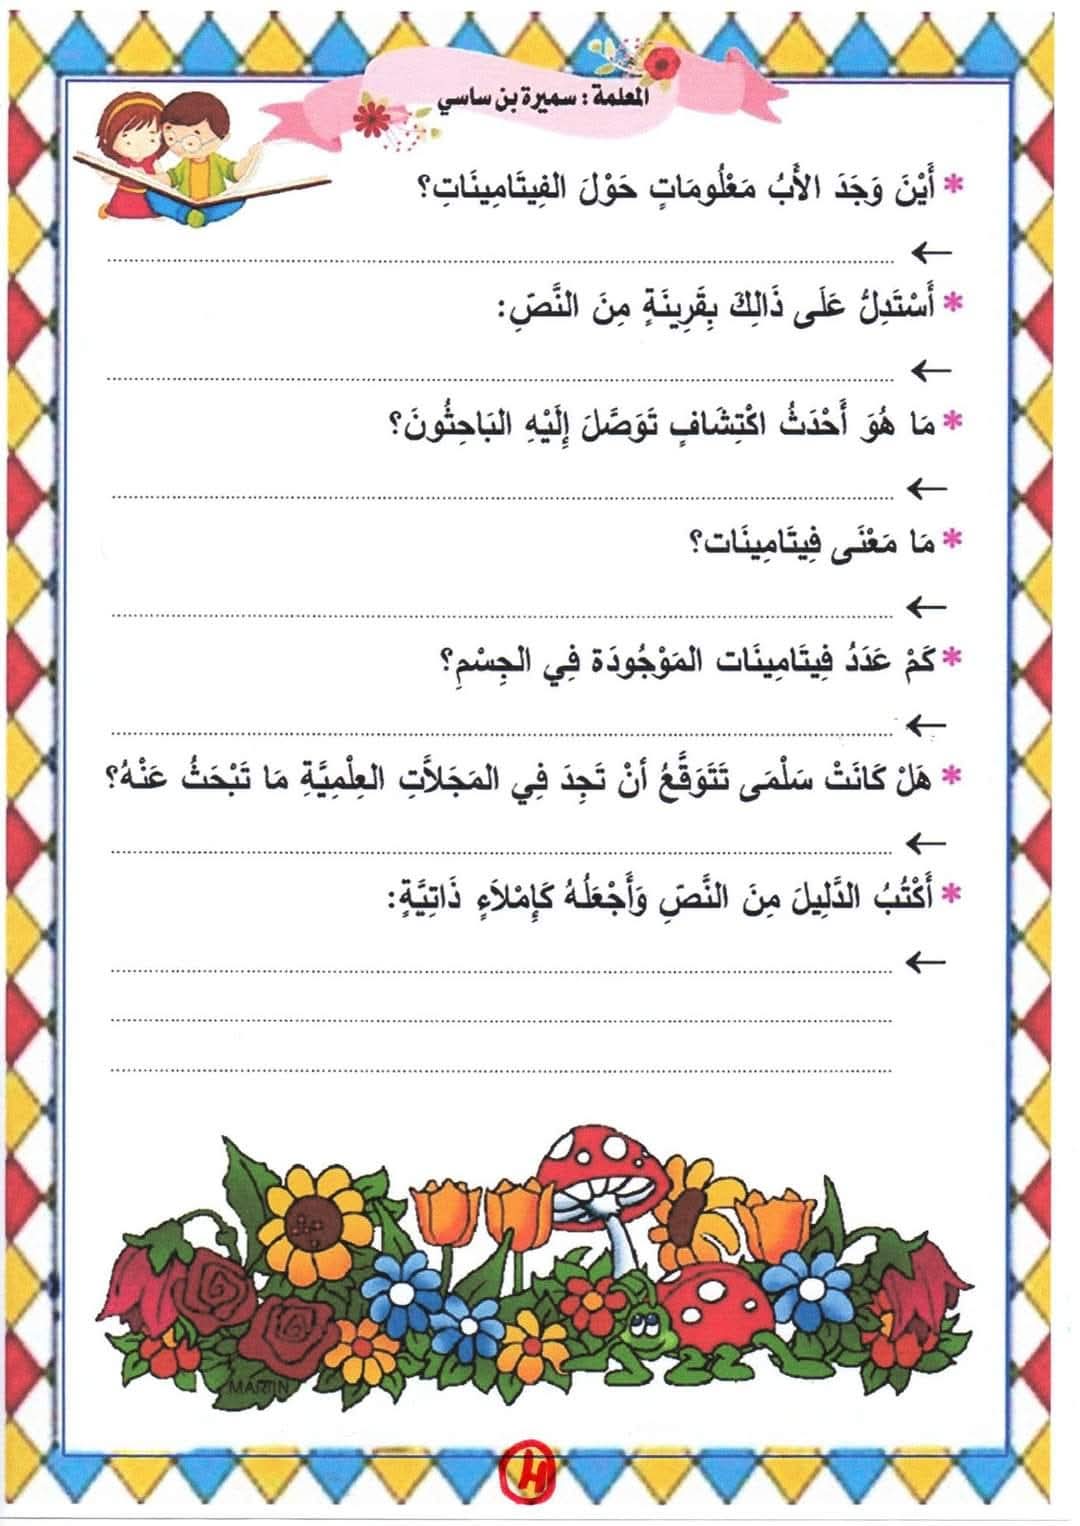 المعلمة : سميرة بن ساسي
* أَيْنَ وَجَدَ الأَبُ مَعْلُومَاتٍ حَوْلَ الفِيتَامِينَاتِ؟
← ........................................
* أَسْتَدِلُّ عَلَى ذَالِكَ بِقَرِينَةٍ مِنَ النَّصِّ:
← ........................................
* مَا هُوَ أَحْدَثُ اكْتِشَافٍ تَوَصَّلَ إِلَيْهِ البَاحِثُونَ؟
← ........................................
* مَا مَعْنَى فِيتَامِينَات؟
← ........................................
* كَمْ عَدَدُ فِيتَامِينَات المَوْجُودَة فِي الجِسْمِ؟
← ........................................
* هَلْ كَانَتْ سَلْمَى تَتَوَقَّعُ أنْ تَجِدَ فِي المَجَلاَّتِ العِلْمِيَّةِ مَا تَبْحَثُ عَنْهُ؟
← ........................................
* أَكْتُبُ الدَّلِيلَ مِنَ النَّصِّ وَأَجْعَلُهُ كَإِمْلاَءٍ ذَاتِيَّةٍ:
← ........................................
........................................
........................................
MARTIN